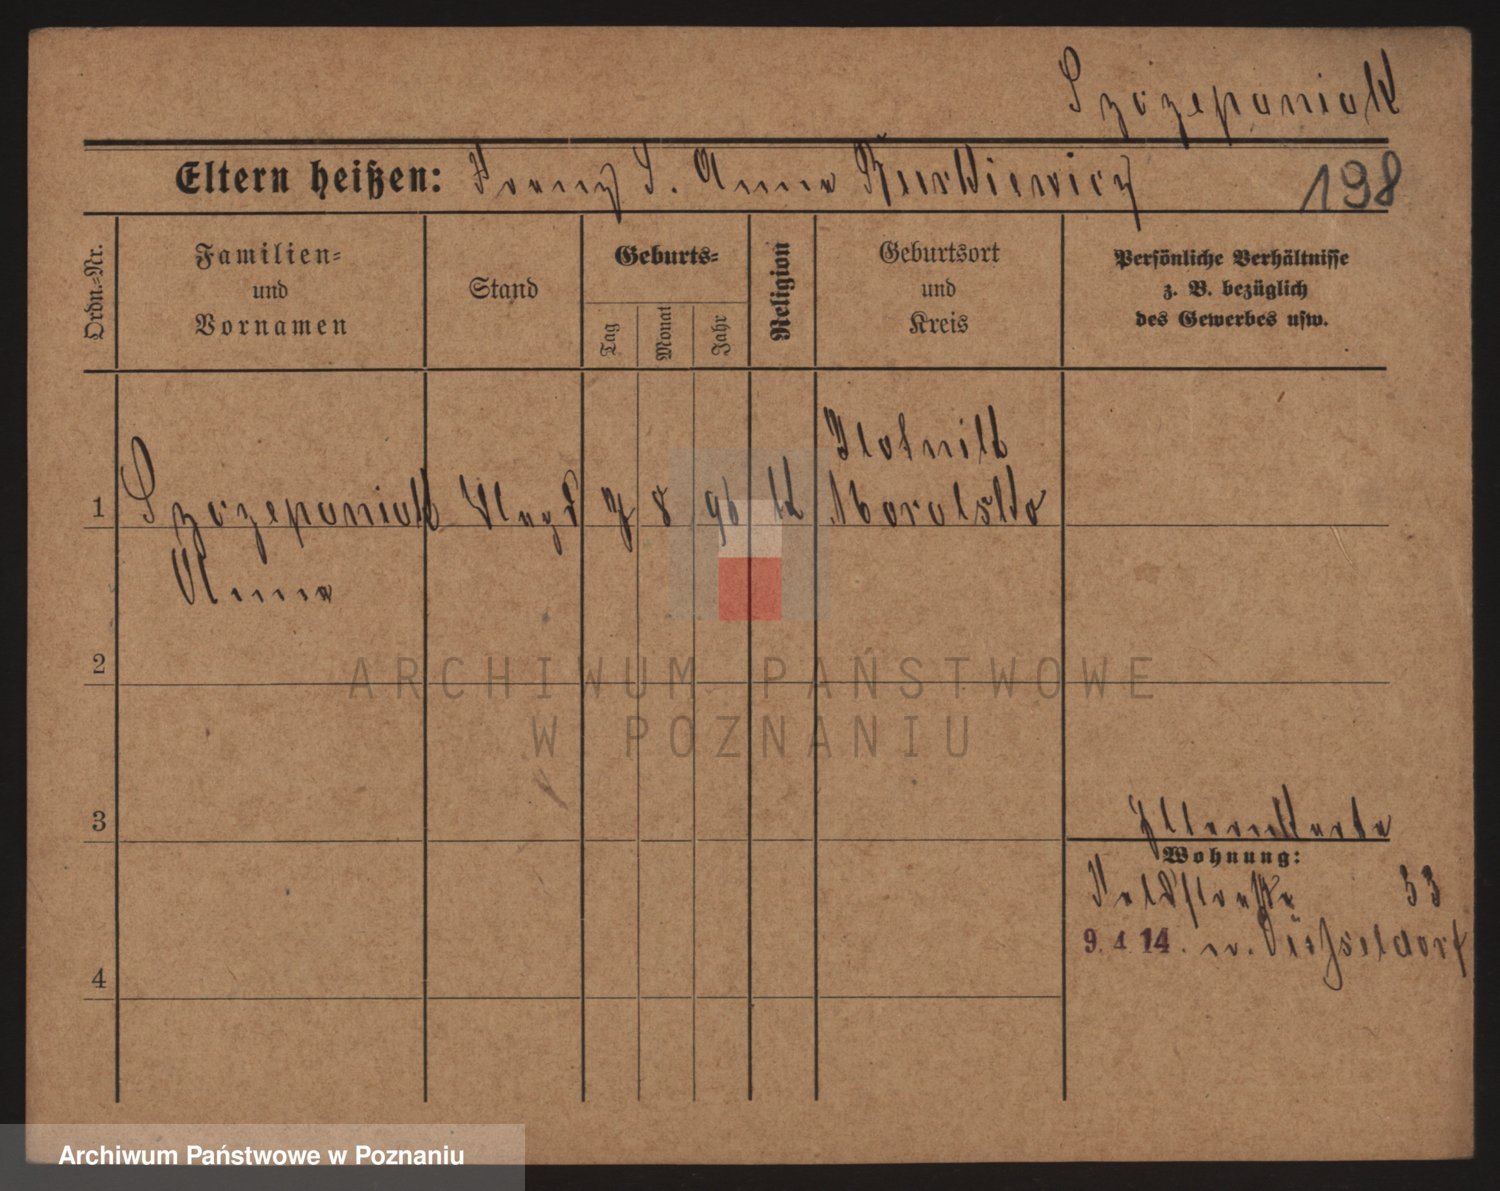 Szczepaniak
Eltern heißen: Franz S. Anna Kurkiewicz
198
Ordn.-Nr.
Familien- und Vornamen
Stand
Geburts-
Tag
Monat
Jahr
Religion
Geburtsort und Kreis
Persönliche Verhältnisse
z. B. bezüglich
des Gewerbes usw.
Złotnik
1 Szczepaniak Magd 7 8 96 k
Anna
2
3
Elternkarte
Wohnung:
Feldstraße 33
9. 4. 14. n. Düsseldorf
4
ARCHIWUM PAŃSTWOWE
W POZNANIU
Archiwum Państwowe w Poznaniu